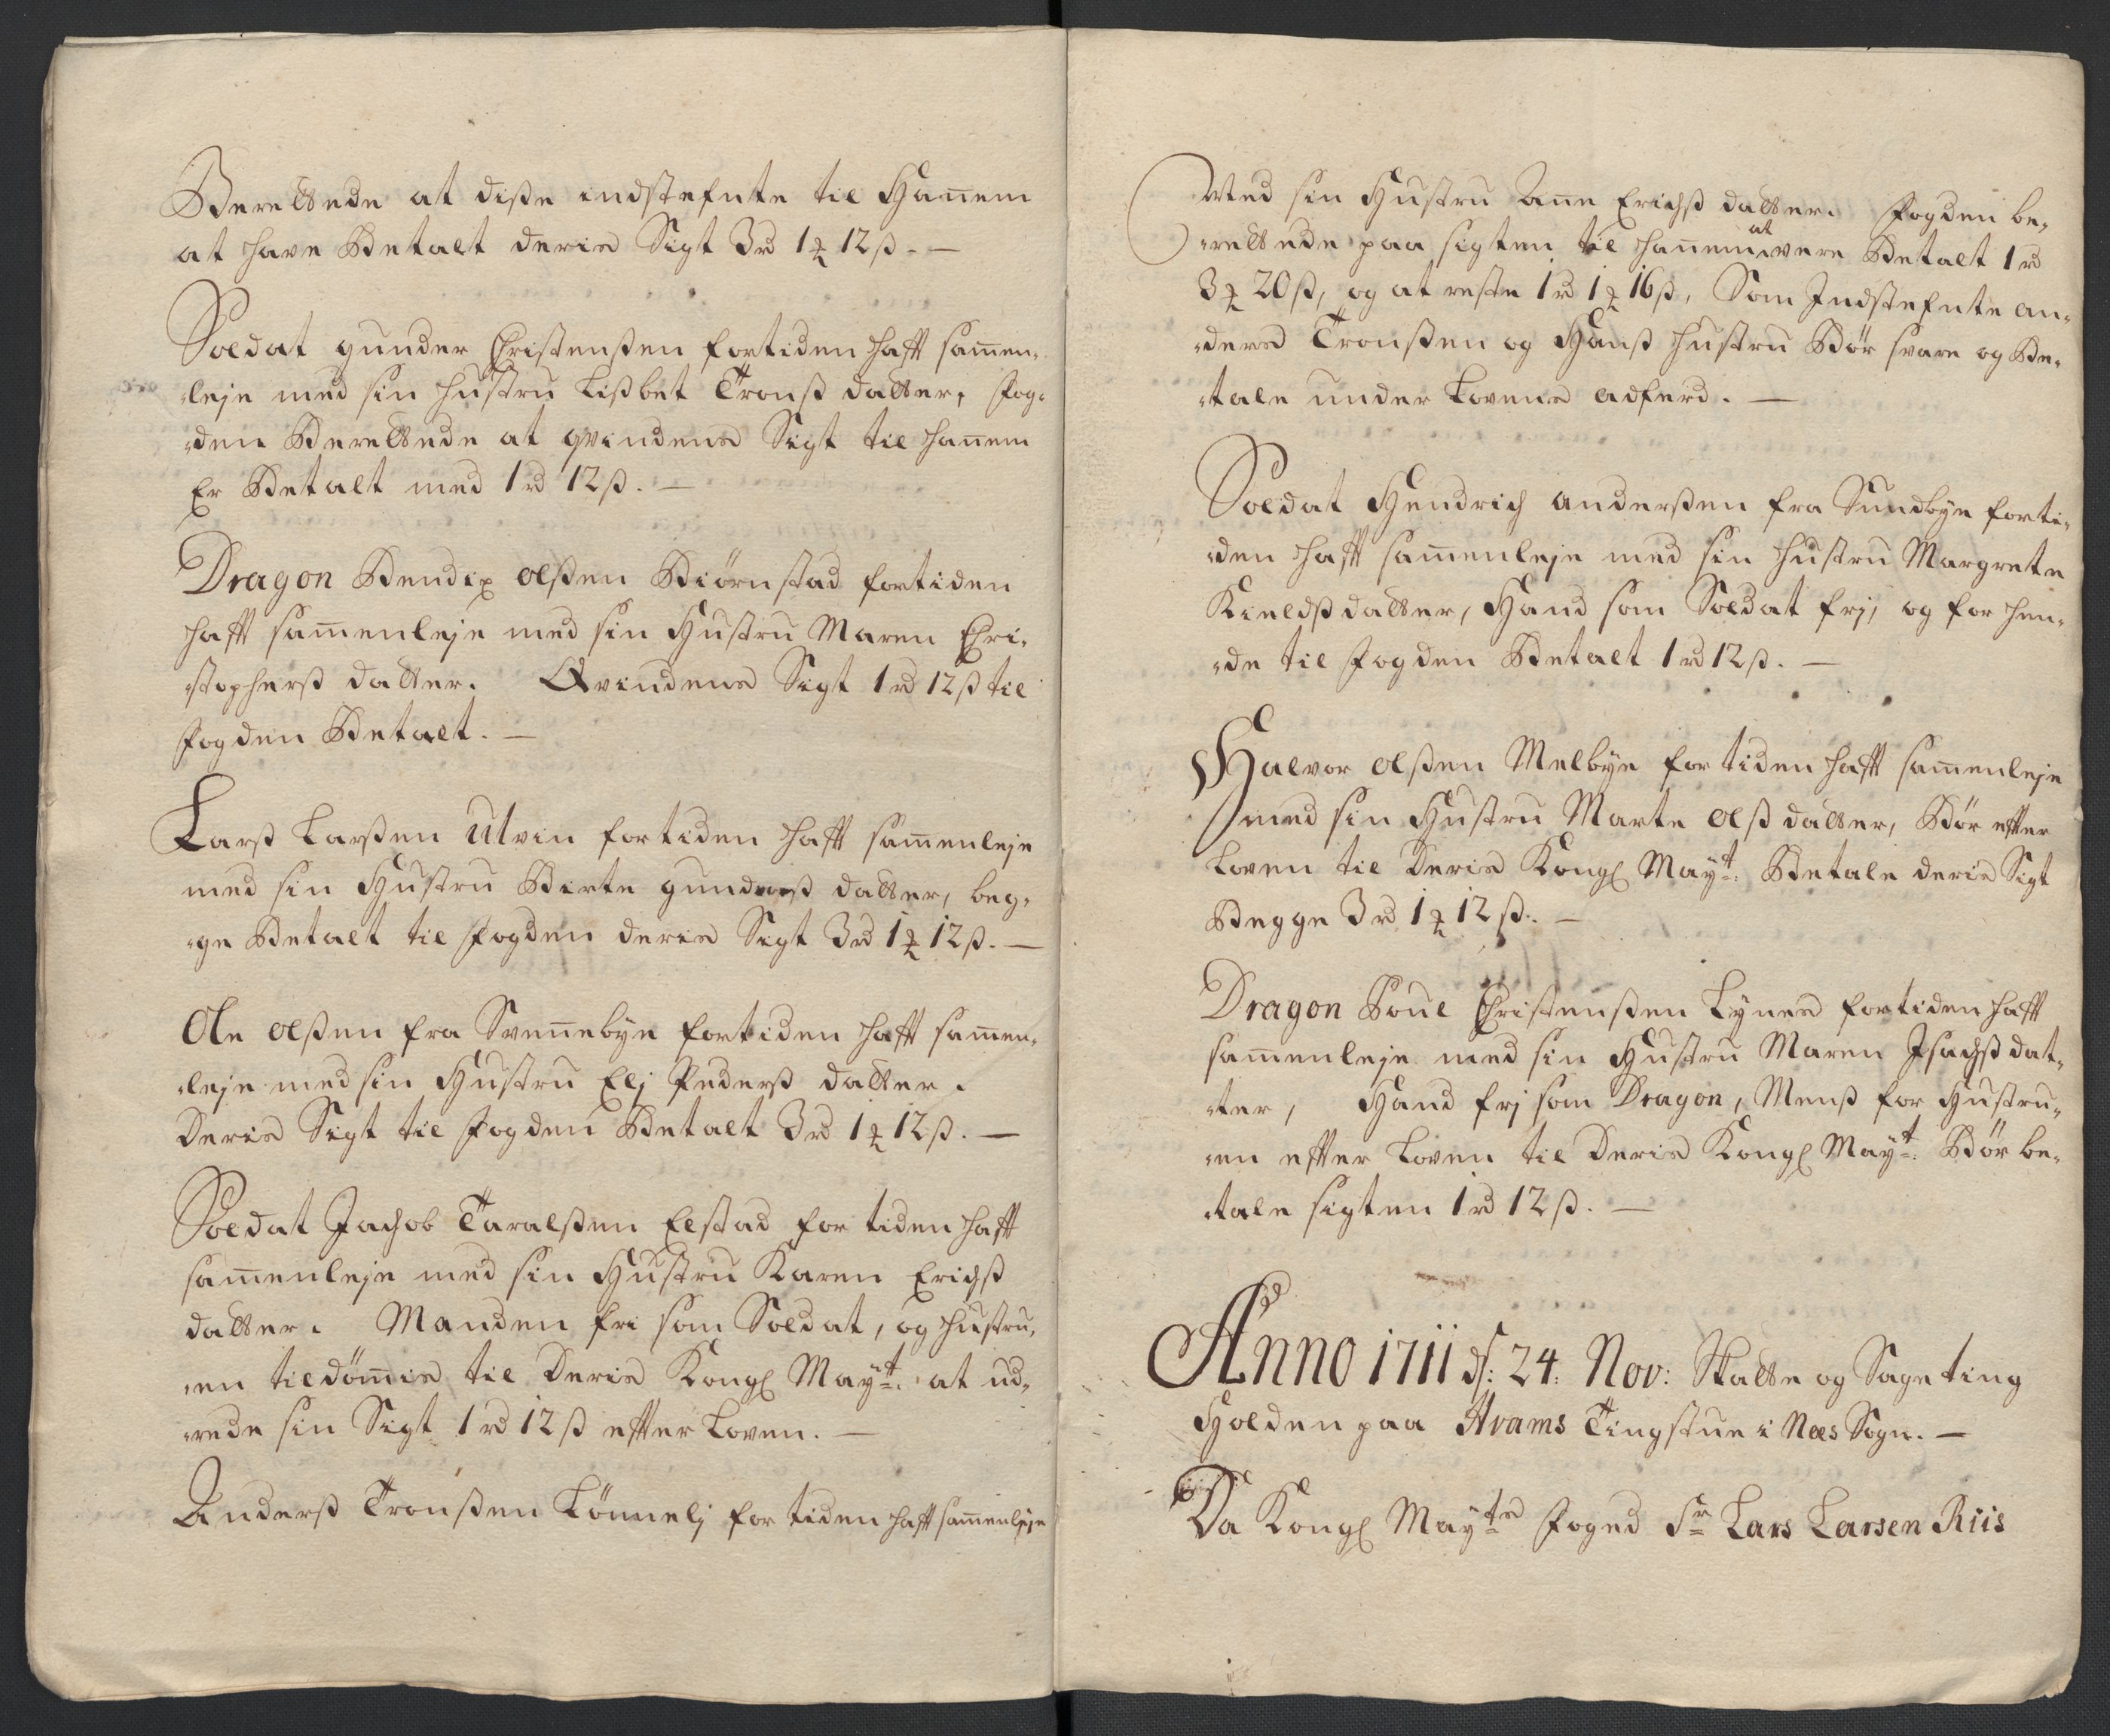 Berettede at disse indstefnte til Hannem
at have Betalt deris Sigt 3 rd 1 ort 12 ß. —
Soldat gunder Christenßen fortiden hafft sammen-
leje med sin hustru Lißbet Tronß datter, Fog-
den Berettede at qvindens Sigt til hannem
Er Betalt med 1 rd 12 ß. —
Dragon Bendix olßen Biörnstad fortiden
hafft sammenleje med sin Hustru Maren Chri-
stopherß datter. Qvindens Sigt 1 rd 12 ß til
Fogden Betalt. —
Larß Larßen Utvin fortiden hafft sammenleje
med sin Hustru Birte gunderß datter, beg-
ge Betalt til Fogden deris Sigt 3 rd 1 ort 12 ß. —
Ole olßen fra Svennebye fortiden hafft sammen-
leje med sin Hustru Elj Pederß datter.
Deris Sigt til Fogden Betalt 3 rd 1 ort 12 ß. —
Soldat Jachob Taralßen Elstad for tiden hafft
sammenleje med sin Hustru Karen Erichß
datter. Manden fri som Soldat, og hustru-
en tildömmis til Deris Kongl Mayt: at ud-
rede sin Sigt 1 rd 12 ß efter Loven. —
Anderß Tronßen Lönnelj for tiden hafft sammenleje
Med sin Hustru Anne Erichß datter. Fogden be-
rettede paa sigten til hannem at vere Betalt 1 rd
3 ort 20 ß, og at reste 1 rd 1 ort 16 ß, Som Indstefnte an-
ders Tronßen og Hanß hustru Bör svare og Be-
tale under Lovens adferd. —
Soldat Hendrich anderßen fra Sundbye forti-
den hafft sammenleje med sin hustru Margrete
Kieldß datter, Hand som Soldat frj, og for hen-
de til Fogden Betalt 1 rd 12 ß. —
Halvor olßen Melbye for tiden hafft sammenleje
med sin Hustru Marte olß datter, Bör efter
Loven til Deris Kongl Mayt: Betale deris Sigt
Begge 3 rd 1 ort 12 ß. —
Dragon Poul Christenßen Lynes fortiden hafft
sammenleje med sin Hustru Maren Isachß dat-
ter, Hand frj som Dragon, Menß for Hustru-
en efter Loven til Deris Kongl Mayt: Bör be-
tale sigten 1 rd 12 ß. —
Anno 1711 d: 24. Nov: Skatte og Sageting
Holden paa Avams Tingstue i Næs Sogn. —
Da Kongl Mayts Foged Sr Lars Larsen Riis